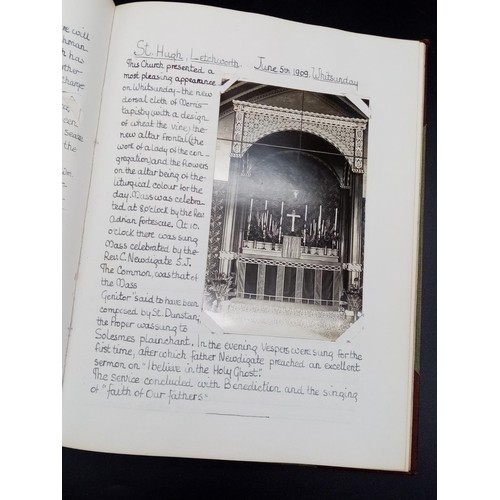 re will
hman
h has
other
change
en
seave
St. Hugh, Letchworth June 5th 1909. Whitsunday
This Church presented a
most pleasing appearance
on Whitsunday - the new
dorsal cloth of Morris-
tapistry with a design
of wheat the vine; the
new altar frontal (the
work of a lady of the con
gregation) and the flowers
on the altar being of the
liturgical colour for the
day. Mass was celebra-
ted, at 8 o'clock by the Rev.
Adrian fortescue. At 10.
o'clock there was sung
Mass celebrated by the
Rev. C. Newdigate S.J.
The Common, was that of
the Mass
Genitor" said to have been
composed by St. Dunstan,
the Proper was sung to
Solesmes plainchant. In the evening Vespers were sung for the
first time, after which father Newdigate preached an excellent
sermon on "I believe in the Holy Ghost."
The service concluded with Benediction and the singing
of "faith of Our fathers"